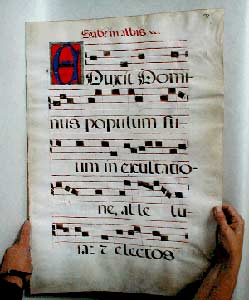 Sabb. in albis
Eduxit Domi
nus populum su
um in exultatio-
ne, al le lu
ia: & electos